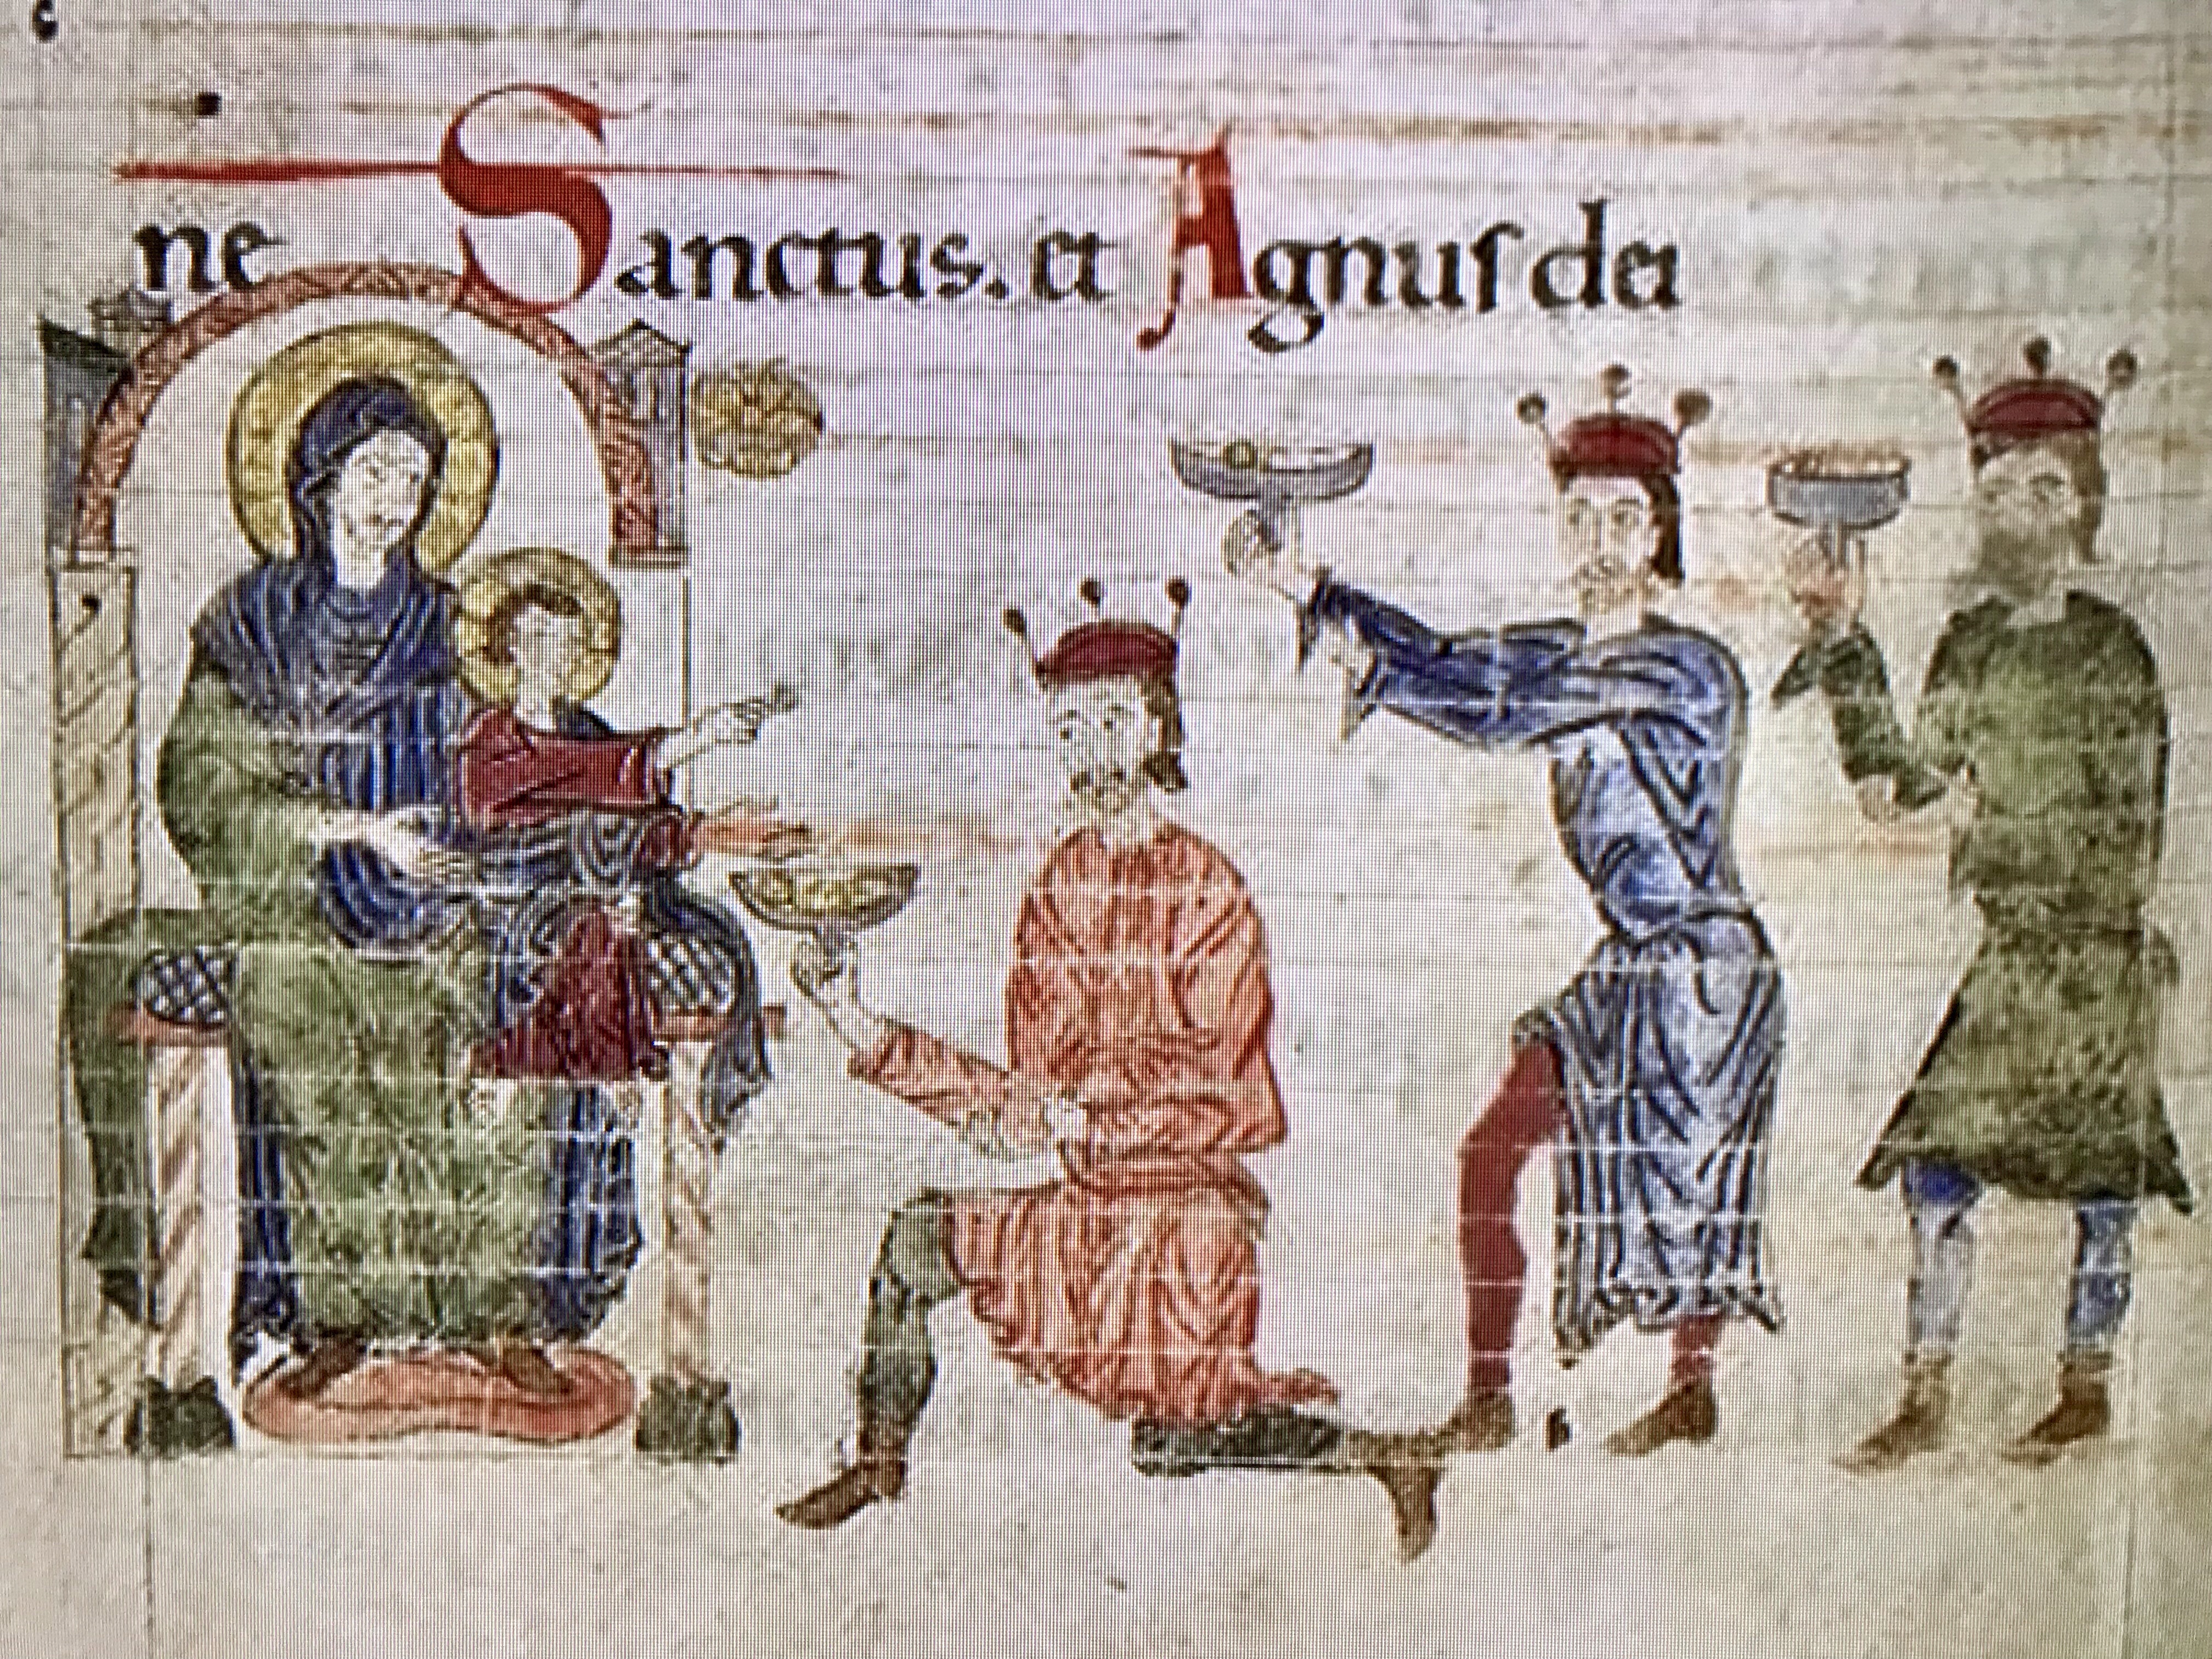 ne Sanctus. et Agnus dei